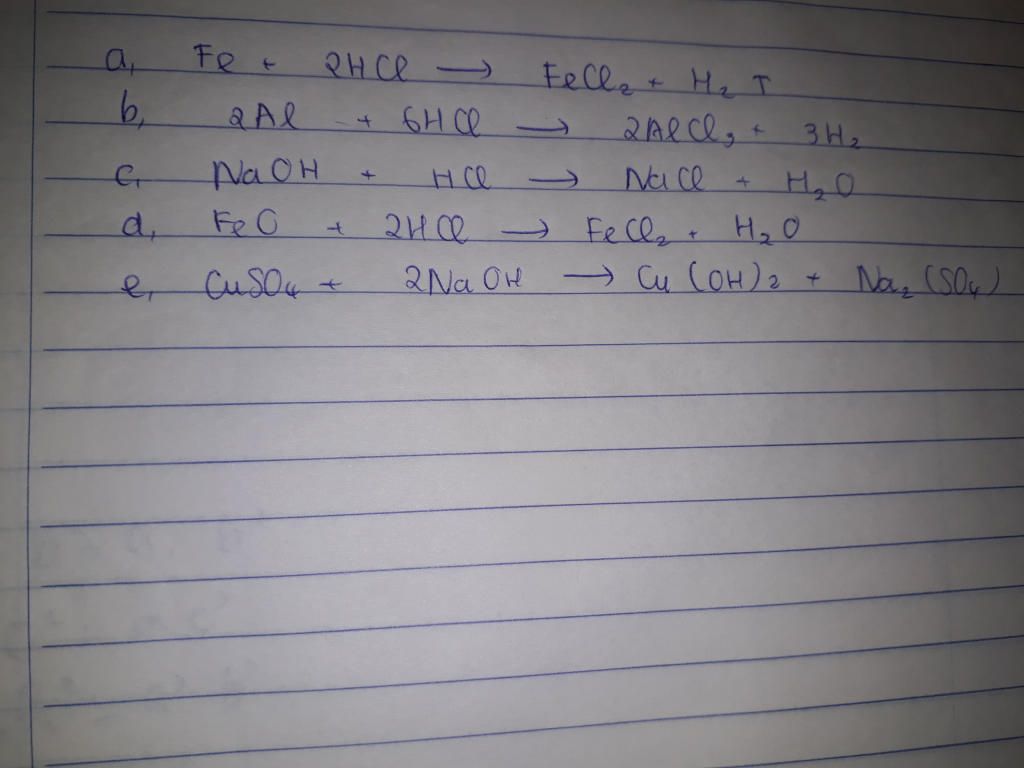 a, Fe + 2HCl → FeCl₂ + H₂ ↑
b, 2Al + 6HCl → 2AlCl₃ + 3H₂
c, NaOH + HCl → NaCl + H₂O
d, FeO + 2HCl → FeCl₂ + H₂O
e, CuSO₄ + 2NaOH → Cu(OH)₂ + Na₂(SO₄)